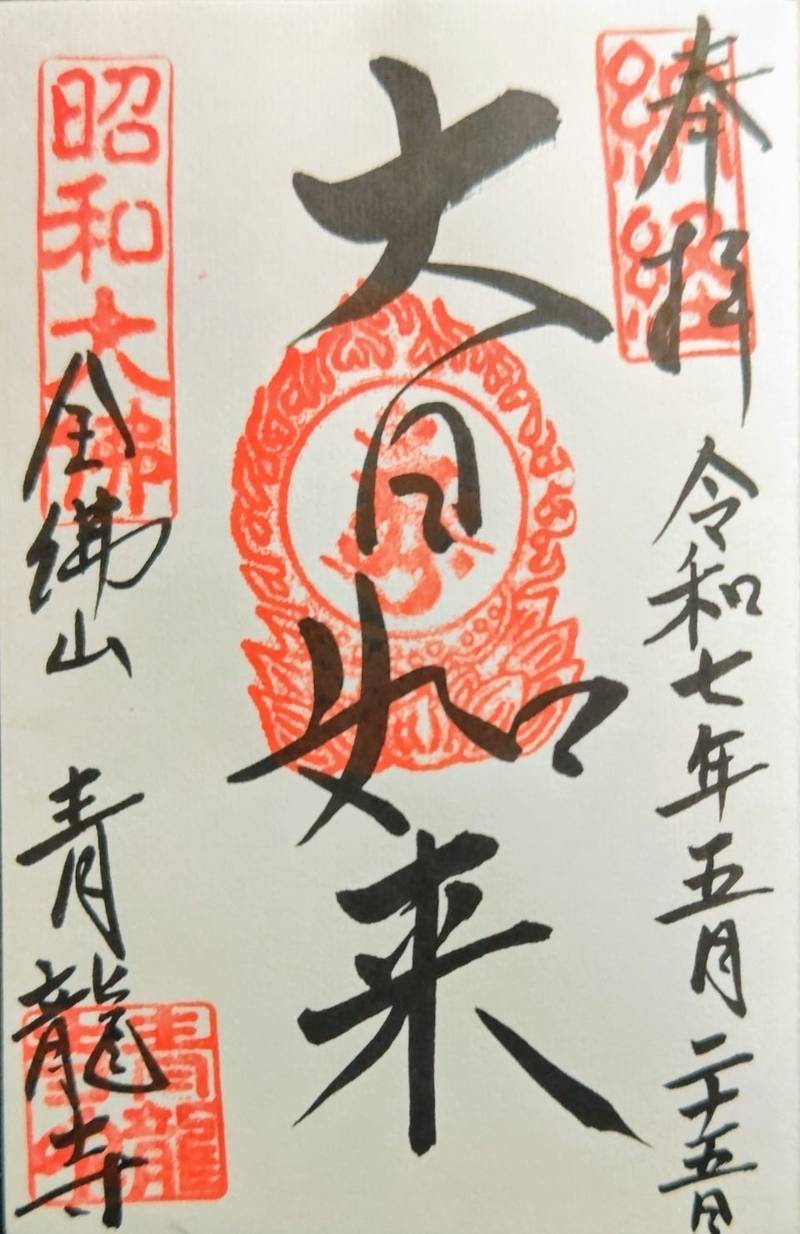 奉拝
納経
令和七年五月二十五日
大日如来
昭和大佛
全佛山 青龍寺
青龍